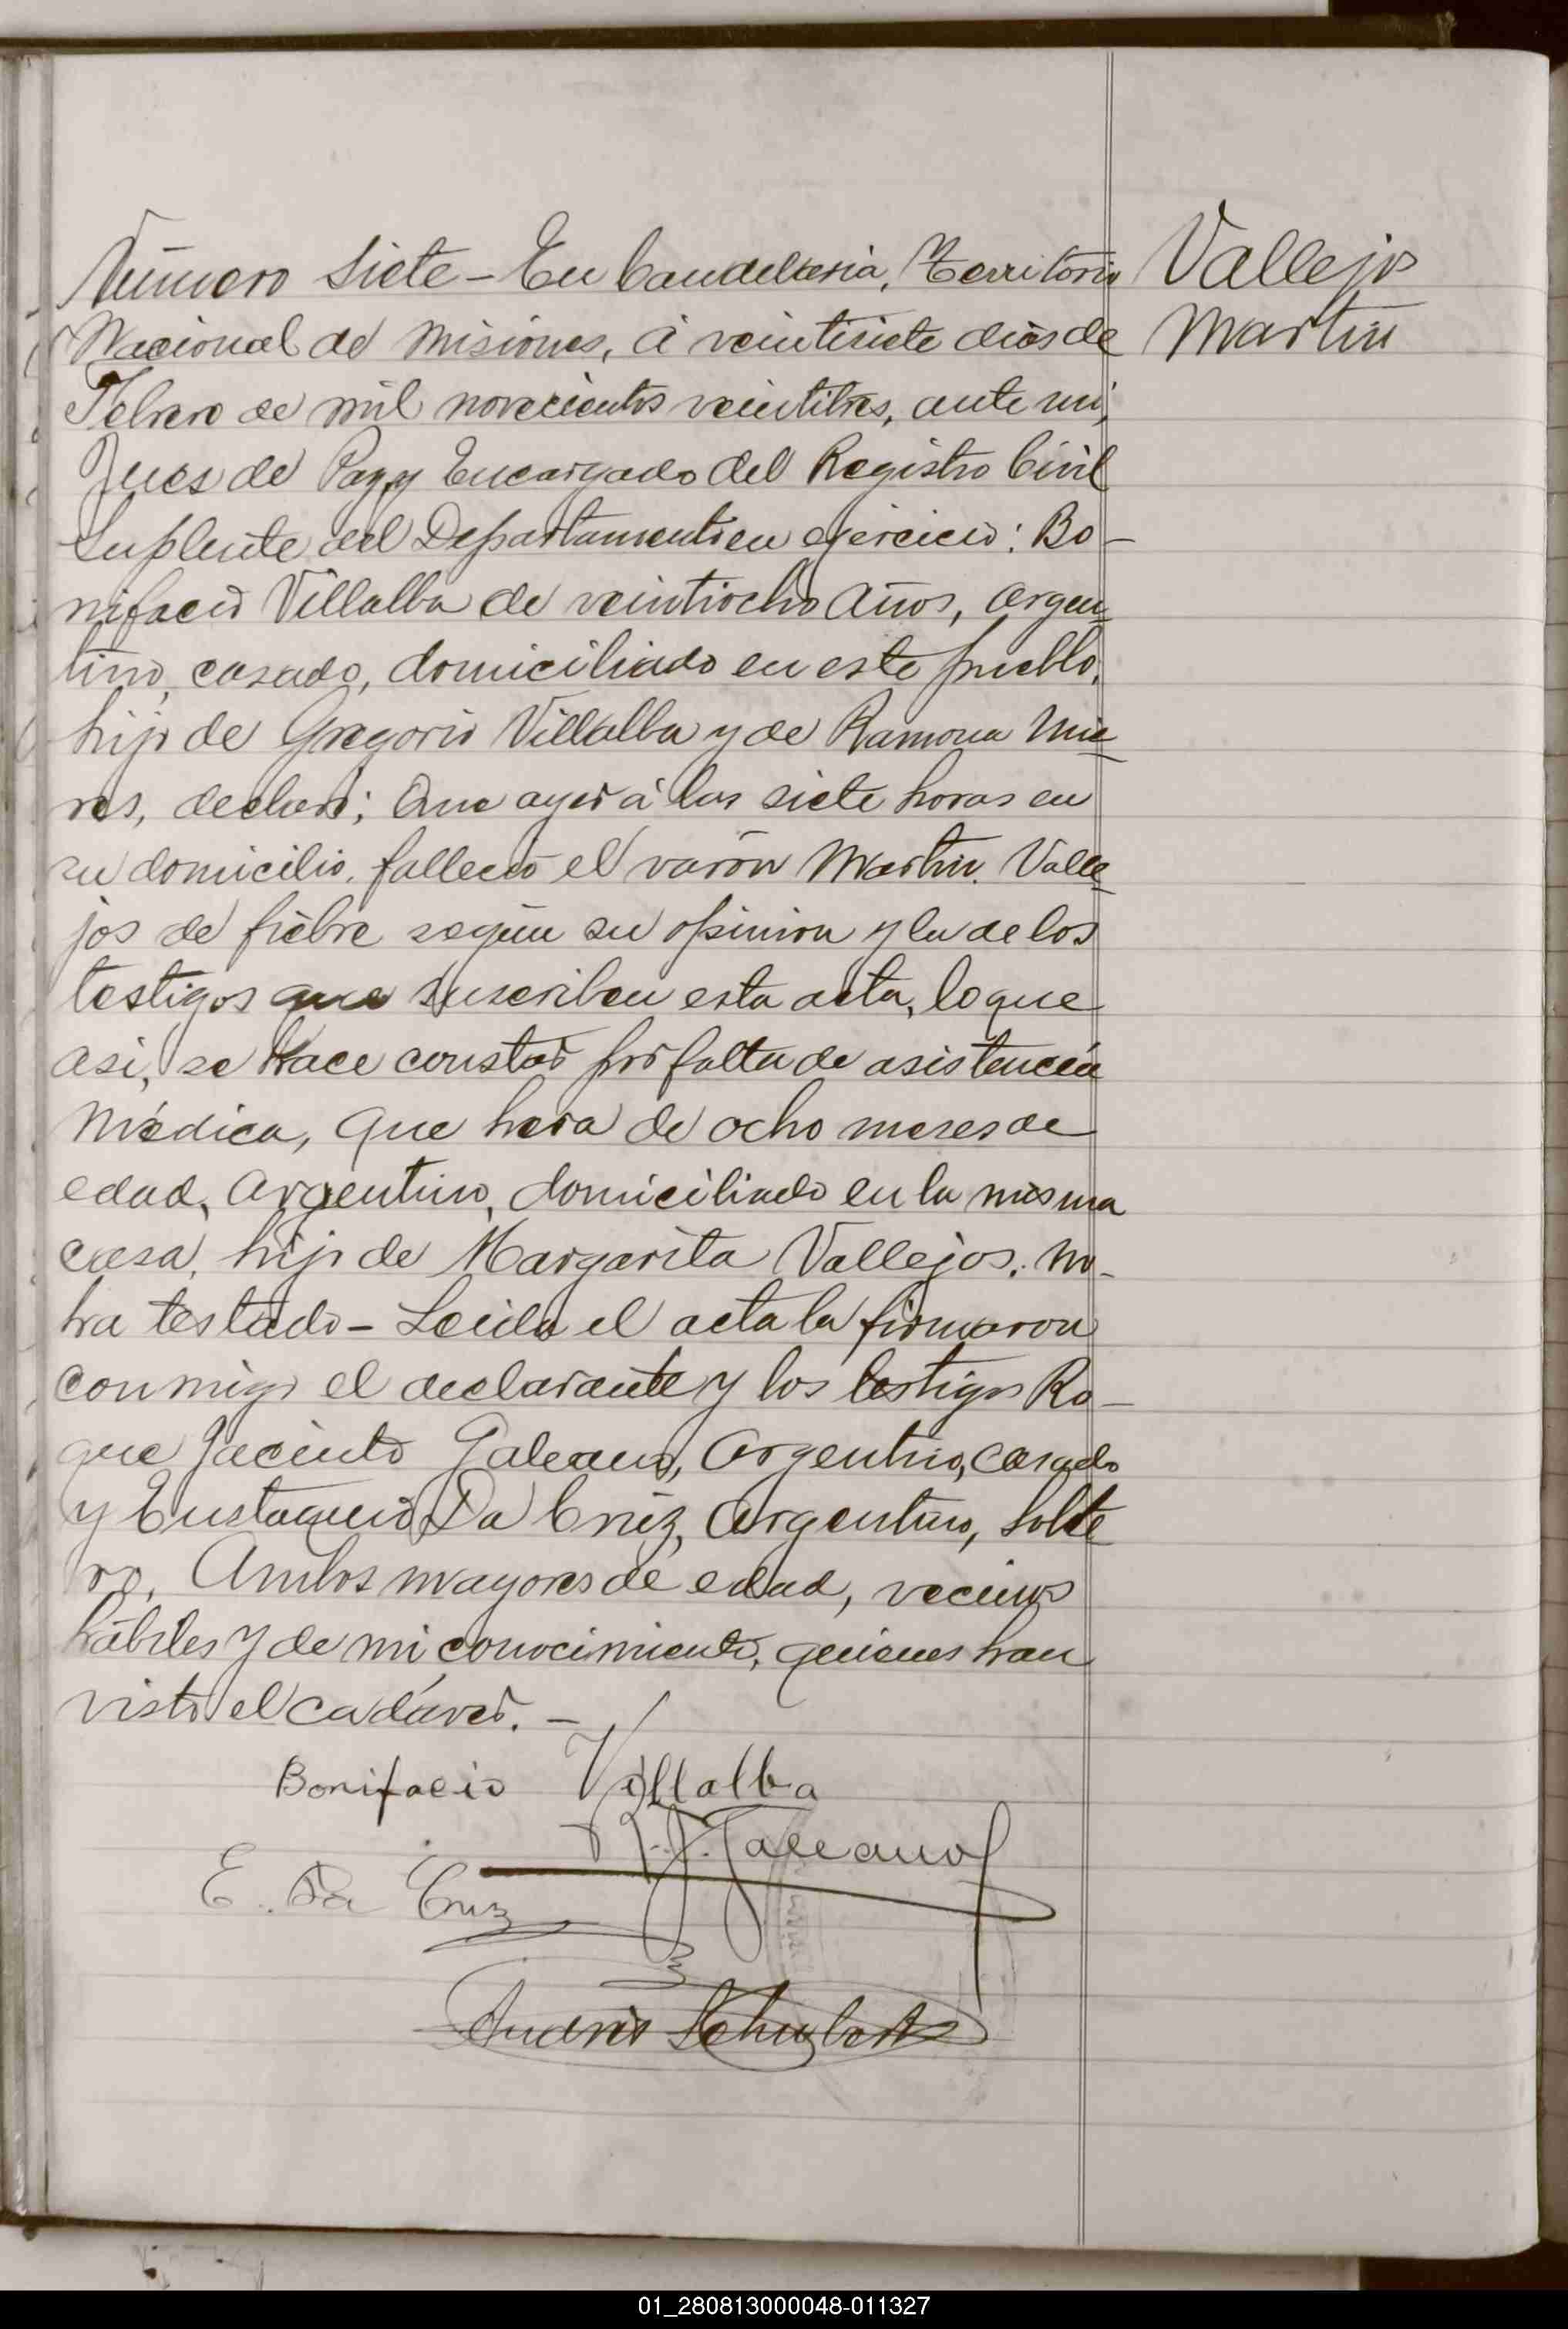 Número Siete - En Candelaria, Territorio
Nacional de Misiones, á veintisiete dias de
Febrero de mil novecientos veintitres, ante mi,
Jues de Paz y Encargado del Registro Civil
Suplente del Departamento en ejercicio: Bo-
nifacio Villalba de veintiocho años, argen-
tino, casado, domiciliado en este pueblo,
hijo de Gregorio Villalba y de Ramona Mie-
res, declaró; Que ayer á las siete horas en
su domicilio, falleció el varón Martin Valle-
jos de fiebre según su opinion y la de los
testigos que suscriben esta acta, lo que
asi, se hace constar por falta de asistencia
Médica, que hera de ocho meses de
edad, argentino, domiciliado en la misma
casa, hijo de Margarita Vallejos. no-
ha testado - Leida el acta la firmaron
conmigo el declarante y los testigos Ro-
que Jacinto Galeano, Argentino, casado
y Eustaquio Da Cruz, Argentino, solte
ro, Ambos mayores de edad, vecinos
hábiles y de mi conocimiento, quienes han
visto el cadáver. -
Bonifacio Villalba
R. J. Galeano
E. Da Cruz
Andrés Schubert
Vallejos
Martin
01_280813000048-011327